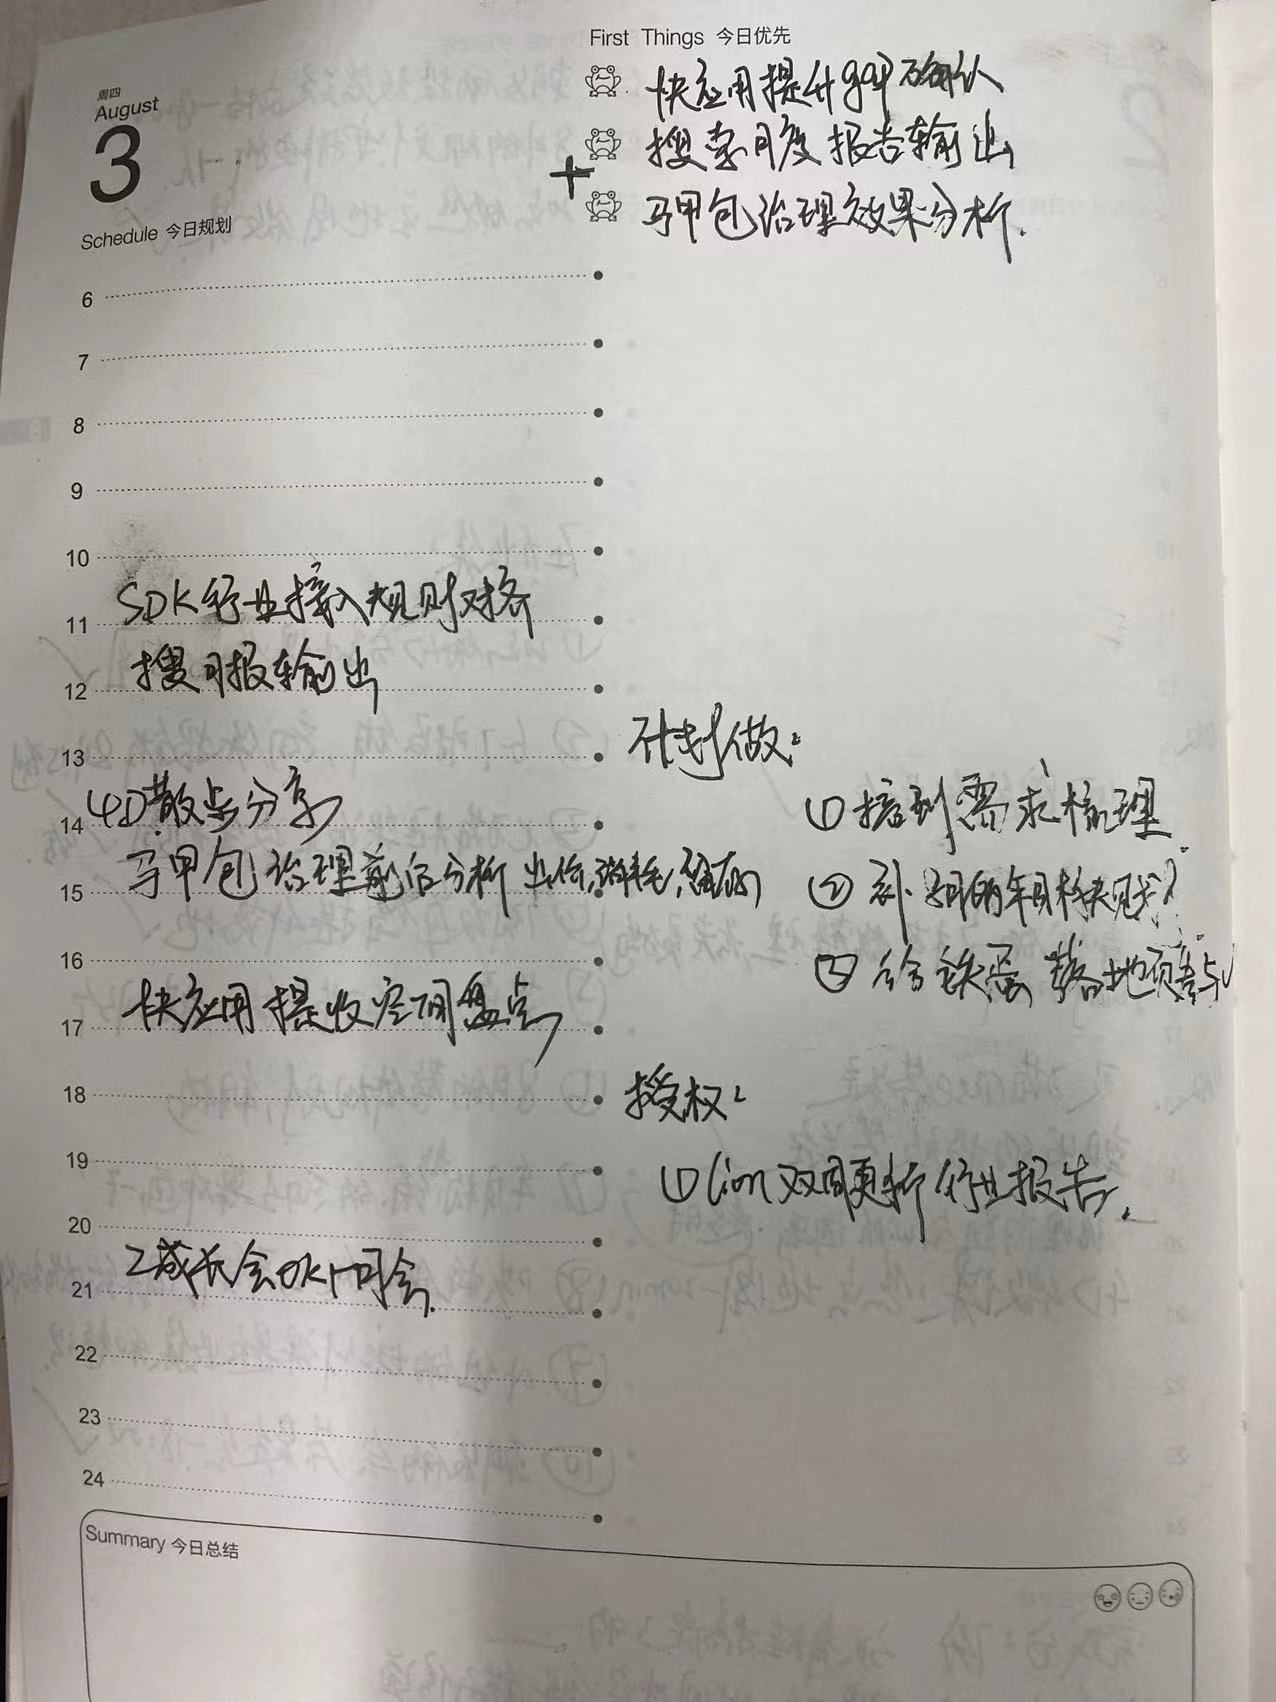 First Things 今日优先
周四
August
3
快应用提升gap确认
搜索月度报告输出
+
马甲包治理效果分析.
Schedule 今日规划
6
7
8
9
10
SDK行业接入规则对齐
11
搜月报输出
12
计划做:
13
4D散点分享
① 培训需求梳理
14
马甲包治理前后分析 出价,消耗,留存
15
②
16
③ 给铁蛋 落地页
快应用提收空间盘点
17
18
授权:
19
① lion双周更新行业报告.
20
Z成长会OKR司会.
21
22
23
24
Summary 今日总结